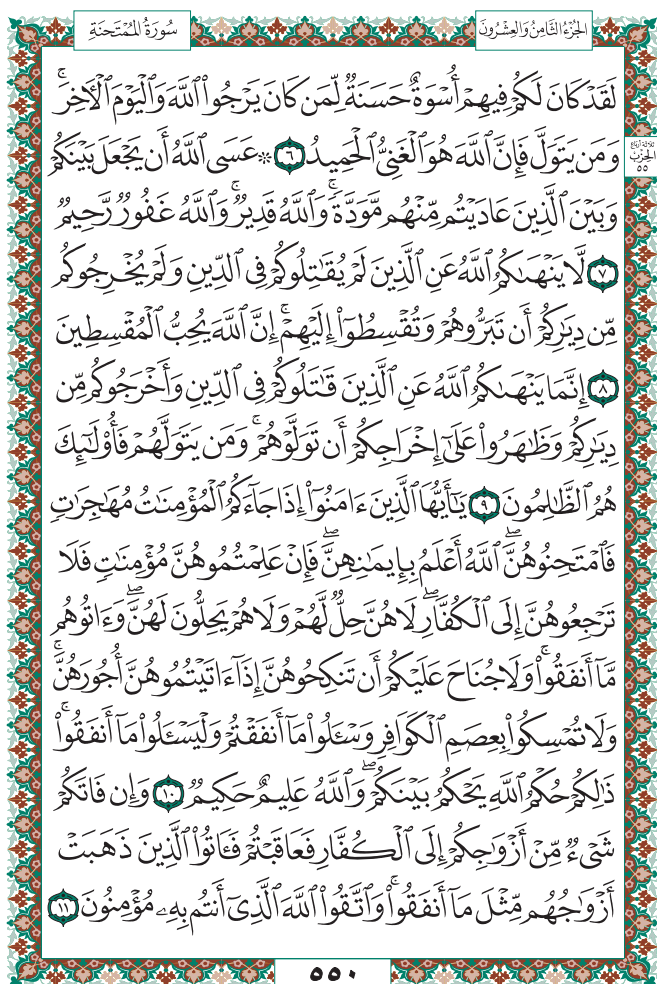 سُورَةُ المُمْتَحنَةِ
الجُزْءُ الثَّامِنُ وَالعِشْرُونَ
لَقَدْ كَانَ لَكُمْ فِيهِمْ أُسْوَةٌ حَسَنَةٌ لِّمَن كَانَ يَرْجُوا۟ ٱللَّهَ وَٱلْيَوْمَ ٱلْـَٔاخِرَۚ
وَمَن يَتَوَلَّ فَإِنَّ ٱللَّهَ هُوَ ٱلْغَنِىُّ ٱلْحَمِيدُ ٦ ۞ عَسَى ٱللَّهُ أَن يَجْعَلَ بَيْنَكُمْ
ثلاثة أرباع
الحِزْب
٥٥
وَبَيْنَ ٱلَّذِينَ عَادَيْتُم مِّنْهُم مَّوَدَّةًۚ وَٱللَّهُ قَدِيرٌۚ وَٱللَّهُ غَفُورٌ رَّحِيمٌ
٧ لَّا يَنْهَىٰكُمُ ٱللَّهُ عَنِ ٱلَّذِينَ لَمْ يُقَـٰتِلُوكُمْ فِى ٱلدِّينِ وَلَمْ يُخْرِجُوكُم
مِّن دِيَـٰرِكُمْ أَن تَبَرُّوهُمْ وَتُقْسِطُوٓا۟ إِلَيْهِمْۚ إِنَّ ٱللَّهَ يُحِبُّ ٱلْمُقْسِطِينَ
٨ إِنَّمَا يَنْهَىٰكُمُ ٱللَّهُ عَنِ ٱلَّذِينَ قَـٰتَلُوكُمْ فِى ٱلدِّينِ وَأَخْرَجُوكُم مِّن
دِيَـٰرِكُمْ وَظَـٰهَرُوا۟ عَلَىٰٓ إِخْرَاجِكُمْ أَن تَوَلَّوْهُمْۚ وَمَن يَتَوَلَّهُمْ فَأُو۟لَـٰٓئِكَ
هُمُ ٱلظَّـٰلِمُونَ ٩ يَـٰٓأَيُّهَا ٱلَّذِينَ ءَامَنُوٓا۟ إِذَا جَآءَكُمُ ٱلْمُؤْمِنَـٰتُ مُهَـٰجِرَٰتٍ
فَٱمْتَحِنُوهُنَّۖ ٱللَّهُ أَعْلَمُ بِإِيمَـٰنِهِنَّۖ فَإِنْ عَلِمْتُمُوهُنَّ مُؤْمِنَـٰتٍ فَلَا
تَرْجِعُوهُنَّ إِلَى ٱلْكُفَّارِۖ لَا هُنَّ حِلٌّ لَّهُمْ وَلَا هُمْ يَحِلُّونَ لَهُنَّۖ وَءَاتُوهُم
مَّآ أَنفَقُوا۟ۚ وَلَا جُنَاحَ عَلَيْكُمْ أَن تَنكِحُوهُنَّ إِذَآ ءَاتَيْتُمُوهُنَّ أُجُورَهُنَّۚ
وَلَا تُمْسِكُوا۟ بِعِصَمِ ٱلْكَوَافِرِ وَسْـَٔلُوا۟ مَآ أَنفَقْتُمْ وَلْيَسْـَٔلُوا۟ مَآ أَنفَقُوا۟ۚ
ذَٰلِكُمْ حُكْمُ ٱللَّهِ يَحْكُمُ بَيْنَكُمْۖ وَٱللَّهُ عَلِيمٌ حَكِيمٌ ١٠ وَإِن فَاتَكُمْ
شَىْءٌ مِّنْ أَزْوَٰجِكُمْ إِلَى ٱلْكُفَّارِ فَعَاقَبْتُمْ فَـَٔاتُوا۟ ٱلَّذِينَ ذَهَبَتْ
أَزْوَٰجُهُم مِّثْلَ مَآ أَنفَقُوا۟ۚ وَٱتَّقُوا۟ ٱللَّهَ ٱلَّذِىٓ أَنتُم بِهِۦ مُؤْمِنُونَ ١١
٥٥٠